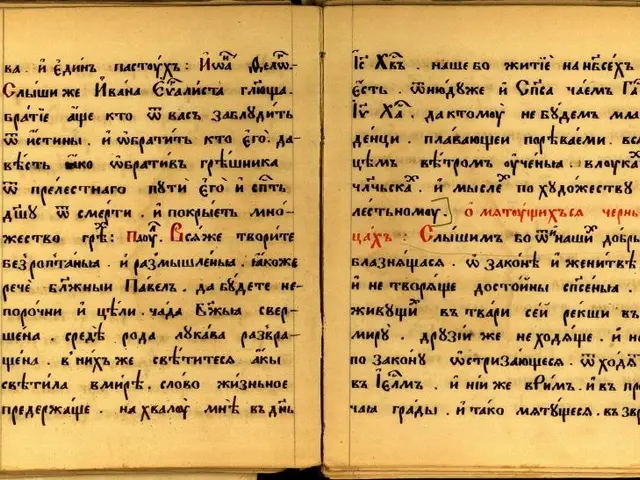 ва . и҆ є҆ди́нъ пасто́ухъ : І҆ѡа́н
Слы́ши же И҆ва́на Є҆ѵⷢ҇али́ста гл҃юща .
бра́тїе а҆́ще кто ѿ ва́съ заблу́дитъ
ѿ и҆́стины . и҆ ѡ҆брати́тъ кто є҆го̀ . да
вѣ́сть ꙗ҆́ко ѡ҆брати́въ грѣ́шника
ѿ пре́лестнаго путѝ є҆го̀ и҆ сп҃тъ
дш҃у ѿ сме́рти . и҆ покры́етъ мно́
жество грѣⷯ : Паѹⷧ . Вся́ же твори́те
безропта́ныа . и҆ размышле́ныа , ꙗ҆́коже
речѐ бл҃жны́й Па́велъ . да бу́дете не
поро́чни и҆ цѣ́ли . ча́да Бж҃ыа све́р
ше́на . средѣ̀ ро́да лука́ва развра
ще́на . в ни́хъ же свѣ́титеся а҆́кы
свѣти́ла в ми́рѣ . сло́во жи́зньное
предержа́ще . на хвалоу̀ мнѣ̀ въ дн҃ь
І҆с Хв҃ъ . на́ше бо житїѐ на нб҃сѣхъ
є҆́сть . ѿню́дуже и҆ Сп҃са ча́емъ Гⷭ҇а
І҆с҃ Хⷭ҇а . да ктому̀ не бу́демъ мла
де́нци . пла́вающеи и҆ порѣва́еми . вся
цѣмъ вѣ́тромъ оу҆че́ныа . в лоука́в
чл҃чьска . и҆ мы́слеⷯ по худо́жеству
ле́стьномоу . Ѡ҆ мяту́щихъся черньꙿ
ца́хъ : Слы́шимъ бо ѿ и҆нъ на́ши до́бры
блазня́щася . ѡ҆ зако́нѣ и҆ жени́твѣ
и҆ не творя́ще досто́йны сп҃се́ныа .
живу́щїи в тва́ри се́й ре́кши въ
ми́ру . друзі́и же не ходя́ще . и҆ не
по зако́ну ѡ҆стриза́ющеся . ѿходѧⷮ
въ І҆ер҃лимъ . и҆ ні́и же в Ри́мъ . и҆ в про
чаа гра́ды . и҆ та́ко мяту́щеся . възвр